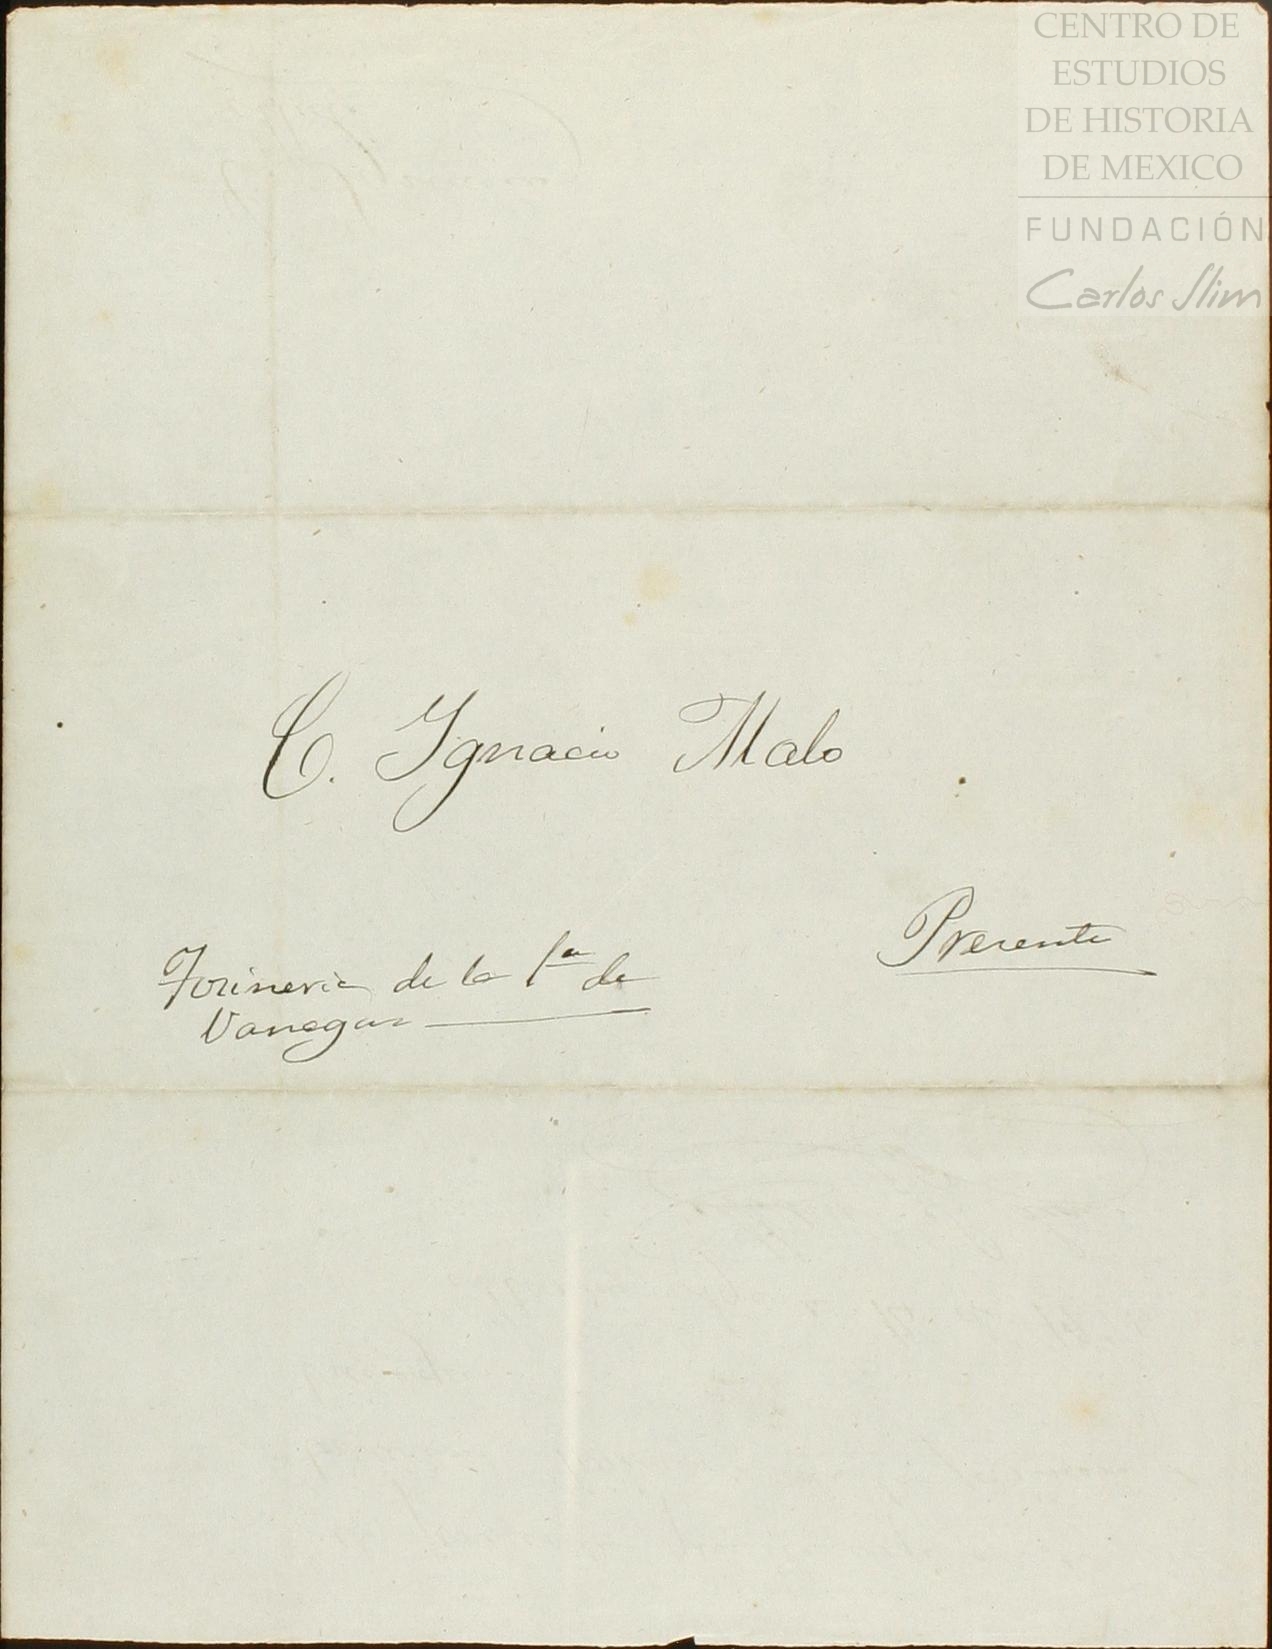 CENTRO DE
ESTUDIOS
DE HISTORIA
DE MEXICO
FUNDACIÓN
Carlos Slim
C. Ignacio Malo
Presente
Tocineria de la 1ª de
Vanegas